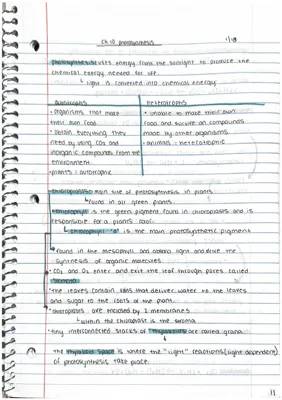 Ch 10 photosynthesis
photosynthesis: uses energy from the sunlight to produce the
chemical energy needed for life.
↳ light is converted into chemical energy
autotrophs
heterotrophs
• organisms that make
their own food
• obtain everything they
need by using CO2 and
inorganic compounds from the
environment
• plants: autotrophic
• unable to make their own
food and survive on compounds
made by other organisms.
• animals: heterotrophic
chloroplasts: main site of photosynthesis in plants
↳ found in all green plants.
chlorophyll is the green pigment found in chloroplasts and is
responsible for a plants color.
chlorophyll "a" is the main photosynthetic pigment
found in the mesophyll and absorb light and drive the
synthesis of organic molecules.
• CO2 and O2 enter and exit the leaf through pores called
stomata
• the leaves contain veins that deliver water to the leaves
and sugar to the roots of the plant.
• chloroplasts are enclosed by 2 membranes
↳ within the chloroplast is the stroma
• tiny interconnected stacks of thylakoids are called grana.
the thylakoid space is where the "light" reactions (light dependent)
of photosynthesis take place.
11